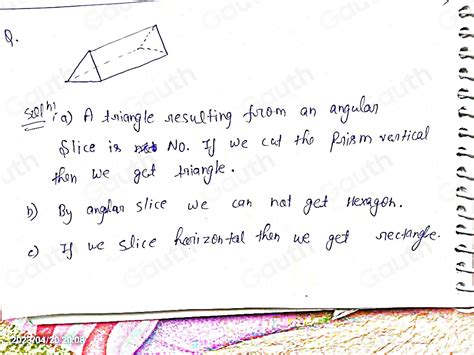 Q.
Solⁿ: a) A triangle resulting from an angular
Slice is No. If we cut the Prism vertical
then we get triangle.
b) By angular slice we can not get Hexagon.
c) If we slice horizontal then we get rectangle.
2023/04/20 20:08